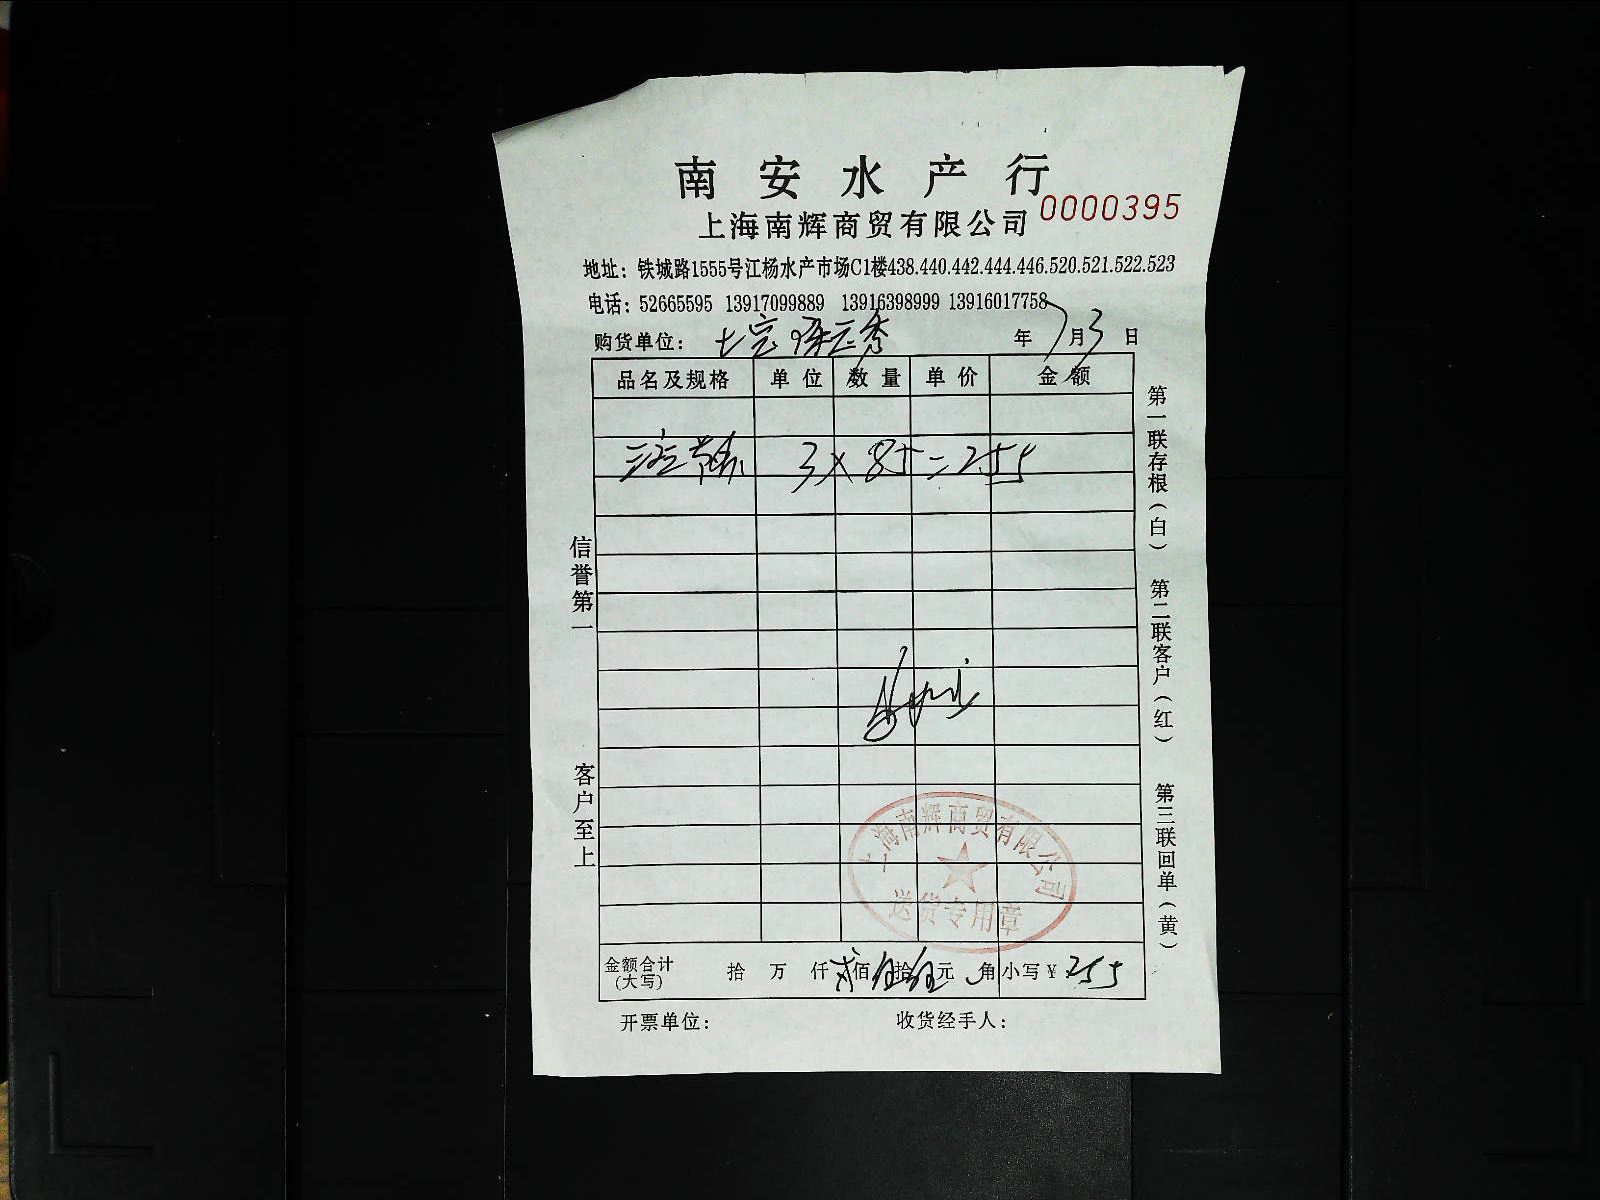 南安水产行
0000395
上海南辉商贸有限公司
地址：铁城路1555号江杨水产市场C1楼438.440.442.444.446.520.521.522.523
电话：52665595 13917099889 13916398999 13916017758
购货单位： 年7月3日
品名及规格 单位 数量 单价 金额
3×85=255
信誉第一
客户至上
第一联存根（白） 第二联客户（红） 第三联回单（黄）
上海南辉商贸有限公司
送货专用章
金额合计（大写） 拾 万 仟 贰佰伍拾伍元 角 小写￥255
开票单位： 收货经手人：